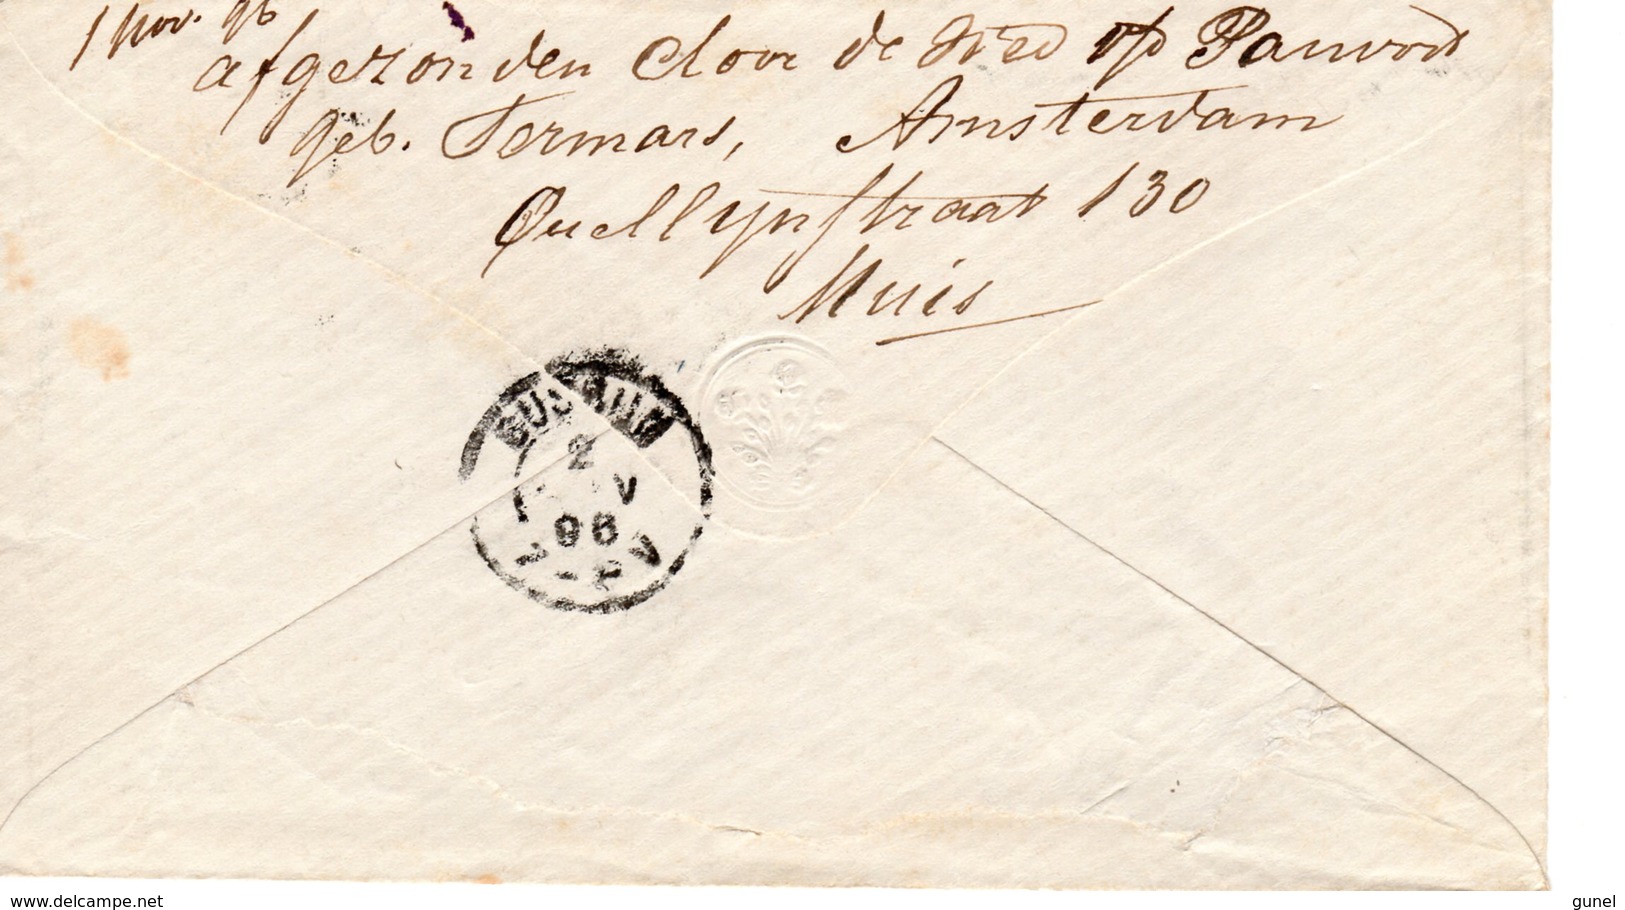 1 Nov. 96
afgezonden door de Wed
geb. Termars, Amsterdam
Quellynstraat 130
Huis
BUSSUM
2
96
7-8 V
delcampe.net
gunel